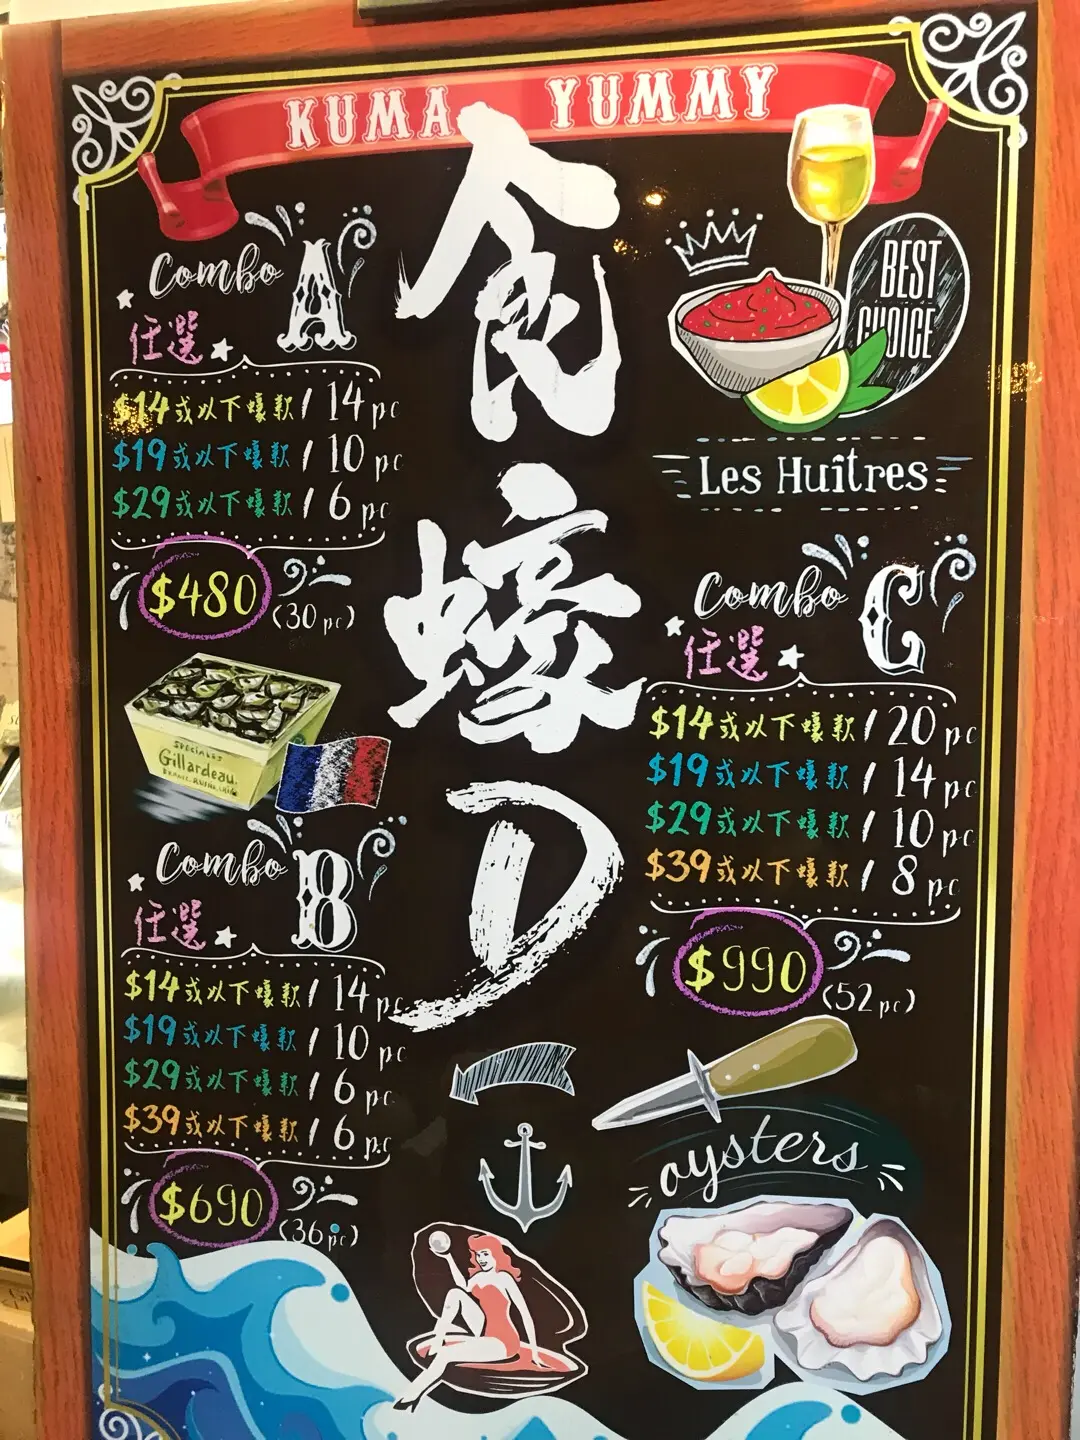 KUMA YUMMY
食蠔D
Combo A
任選
$14或以下蠔款 / 14 pc
$19或以下蠔款 / 10 pc
$29或以下蠔款 / 6 pc
$480 (30 pc)
SPECIALES
Gillardeau
Combo B
任選
$14或以下蠔款 / 14 pc
$19或以下蠔款 / 10 pc
$29或以下蠔款 / 6 pc
$39或以下蠔款 / 6 pc
$690 (36 pc)
BEST
CHOICE
Les Huîtres
Combo C
任選
$14或以下蠔款 / 20 pc
$19或以下蠔款 / 14 pc
$29或以下蠔款 / 10 pc
$39或以下蠔款 / 8 pc
$990 (52 pc)
oysters